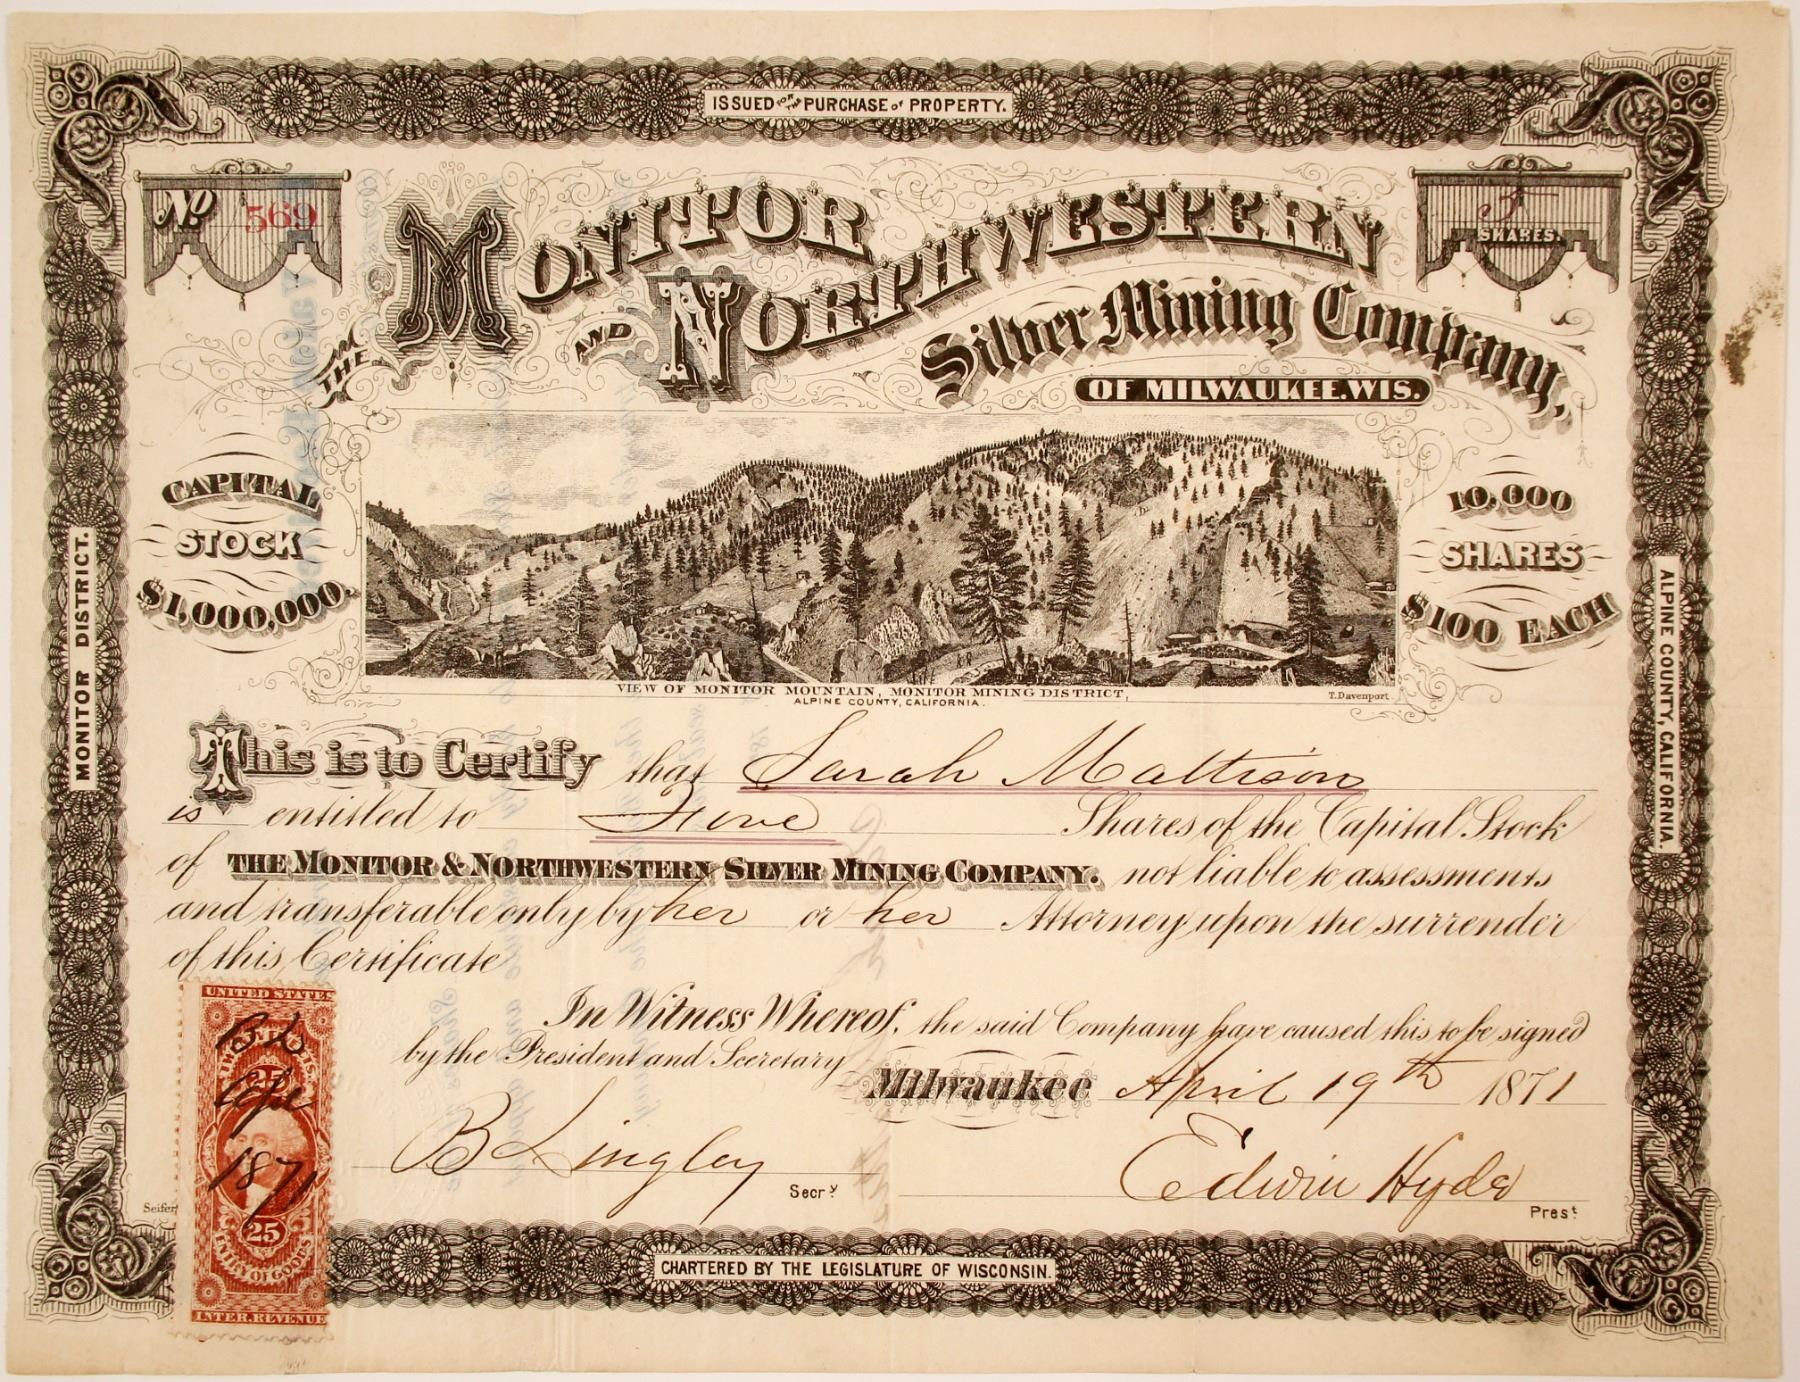 ISSUED FOR THE PURCHASE OF PROPERTY.
No 569
5
SHARES.
THE MONITOR AND NORTHWESTERN
Silver Mining Company,
OF MILWAUKEE, WIS.
CAPITAL
STOCK
$1,000,000.
10,000
SHARES
$100 EACH
MONITOR DISTRICT.
ALPINE COUNTY, CALIFORNIA.
VIEW OF MONITOR MOUNTAIN, MONITOR MINING DISTRICT,
ALPINE COUNTY, CALIFORNIA.
T. Davenport
This is to Certify that Sarah Mattison
is entitled to Five Shares of the Capital Stock
of THE MONITOR & NORTHWESTERN SILVER MINING COMPANY. not liable to assessments
and transferable only by her or her Attorney upon the surrender
of this Certificate
In Witness Whereof, the said Company have caused this to be signed
by the President and Secretary
Milwaukee April 19th 1871
B Lingley Secry
Edwin Hyde Prest
Seifert
UNITED STATES
TWENTY FIVE CTS.
25
B L
1871
25
ENTRY OF GOODS
INTER. REVENUE
CHARTERED BY THE LEGISLATURE OF WISCONSIN.